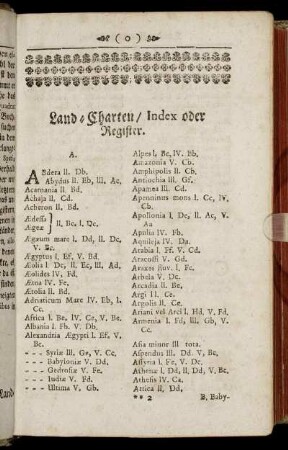 ( 0 )
Land-Charten / Index oder
Register.
A.
ABdera II. Db.
Abydus II. Bb, III, Ac,
Acarnania II. Bd.
Achaja II. Cd.
Acheron II. Bd.
Ædessa
Ægea } II, Bc, I, Dc.
Ægæum mare I. Dd, II, Dc,
V. Bc.
Ægyptus I, Ef, V. Bd.
Æolia I. Dc, II, Ec, III, Ad,
Æolides IV. Fd.
Ætna IV. Fe.
Ætolia II. Bd.
Adriaticum Mare IV. Eb, I.
Cc.
Africa I. Be, IV. Ce, V, Be.
Albania I. Fb, V. Db.
Alexandria Ægypti I. Ef, V,
Bc.
- - - Syriæ III, Ge, V. Cc,
- - - Babyloniæ V. Dd.
- - - Gedrosiæ V. Fe.
- - - Indiæ V. Fd.
- - - Ultima V, Gb.
Alpes I, Bc, IV. Bb,
Amazonia V. Cb.
Amphipolis II. Cb.
Antiochia III. Gf,
Apamea III. Cd.
Apenninus mons I. Cc, IV,
Cb.
Apollonia I, Dc, II, Ac, V.
Aa
Apulia IV. Fb.
Aquileja IV. Da.
Arabia I, Ff. V. Cd.
Aracosii V. Gd.
Araxes fluv. I, Fc.
Arbela V. Dc.
Arcadia II. Be,
Argi II. Ce.
Argolis II, Ce.
Ariani vel Arei I. Hd, V. Fd,
Armenia I. Fd, III, Gb, V.
Cc.
Asia minor III tota.
Aspendus III. Dd, V, Bc,
Assyria I, Fc, V. Dc.
Athenæ I, Dd, II, Dd, V, Bc,
Athesis IV. Ca,
Attica II, Dd,
** 2
B. Baby-